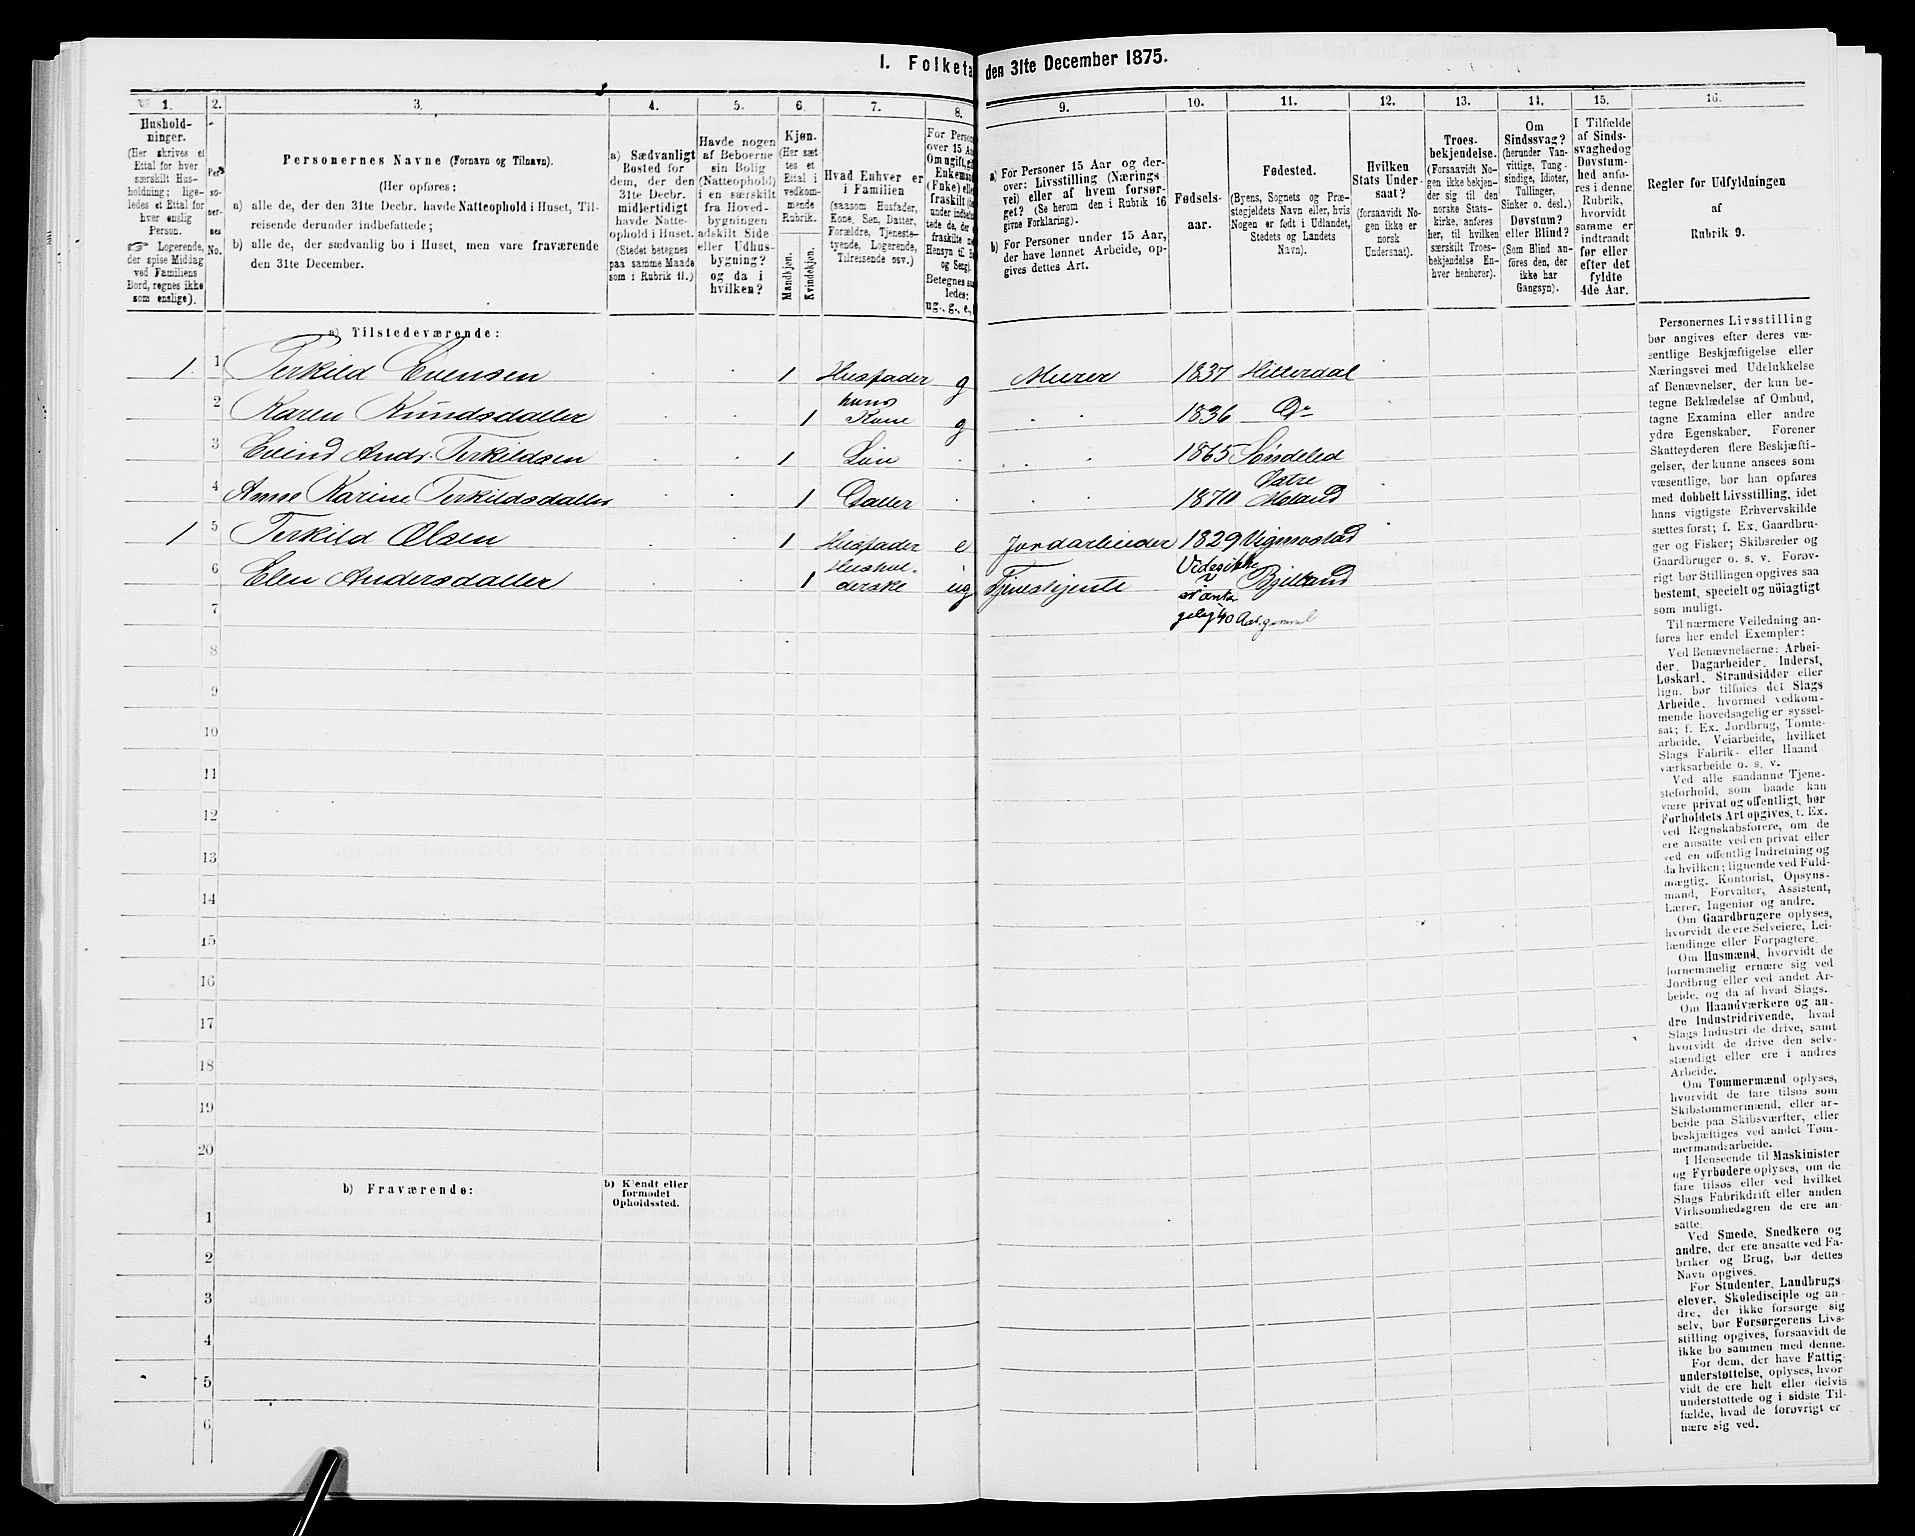 I. Folketa den 31te December 1875.
1. 2. 3. 4. 5. 6. 7. 8. 9. 10. 11. 12. 13. 14. 15. 16.
Hushold-
ninger.
(Her skrives et
Ettal for hver
særskilt Hus-
holdning; lige-
ledes et Ettal for
hver enslig
Person.
☞ Logerende,
der spise Middag
ved Familiens
Bord, regnes ikke
som enslige).
Per
so-
ner-
nes
No.
Personernes Navne (Fornavn og Tilnavn).
(Her opføres:
a) alle de, der den 31te Decbr. havde Natteophold i Huset, Til-
reisende derunder indbefattede;
b) alle de, der sædvanlig bo i Huset, men vare fraværende
den 31te December.
a) Sædvanligt
Bosted for
dem, der den
31te Decbr.
midlertidigt
havde Natte-
ophold i Huset.
(Stedet betegnes
paa samme Maade
som i Rubrik 11.)
Havde nogen
af Beboerne
sin Bolig
(Natteophold)
i en særskilt
fra Hoved-
bygningen
adskilt Side
eller Udhus-
bygning?
og da i
hvilken?
Kjøn.
(Her sæt-
tes et
Ettal i
vedkom-
mende
Rubrik.
Mandkjøn.
Kvindekjøn.
Hvad Enhver er
i Familien
(saasom Husfader,
Kone, Søn, Datter,
Forældre, Tjeneste-
tyende, Logerende,
Tilreisende osv.)
For Perso
over 15 Aa
Om ugift, gi
Enkema
(Enke) ell
fraskilt (
under indbef
tede de, de
fraskilte
Hensyn til B
og Seng).
Betegnes saa
ledes:
ug., g., e.,
a) For Personer 15 Aar og der-
over: Livsstilling (Nærings
vei) eller af hvem forsør-
get? (Se herom den i Rubrik 16
givne Forklaring).
b) For Personer under 15 Aar,
der have lønnet Arbeide, op-
gives dettes Art.
Fødsels-
aar.
Fødested.
(Byens, Sognets og Præ-
stegjeldets Navn eller, hvis
Nogen er født i Udlandet,
Stedets og Landets
Navn).
Hvilken
Stats Under-
saat?
(forsaavidt No-
gen ikke er
norsk
Undersaat).
Troes-
bekjendelse.
(Forsaavidt No-
gen ikke bekjen-
der sig til den
norske Stats-
kirke, anføres
her, til hvilken
særskilt Troes-
bekjendelse En-
hver henhører).
Om
Sindssvag?
(herunder Van-
vittige, Tung-
sindige, Idioter,
Tullinger,
Sinker o. desl.)
Døvstum?
eller Blind?
(Som Blind an-
føres den, der
ikke har
Gangsyn).
I Tilfælde
af Sinds-
svaghed og
Døvstum-
hed anfø-
res i denne
Rubrik,
hvorvidt
samme er
indtraadt
før eller
efter det
fyldte
4de Aar.
Regler for Udfyldningen
af
Rubrik 9.
a) Tilstedeværende:
1 1 Terkild Evensen 1 Husfader g Murer 1837 Hitterdal
2 Karen Knudsdatter 1 hans Kone g 1836 Do
3 Eivind Andr. Terkildsen 1 Søn 1865 Søndeled
4 Anne Karine Terkildsdatter 1 Datter 1870 Østre Moland
1 5 Terkild Olsen 1 Husfader e Jordarbeider 1829 Vigmostad
6 Elen Andersdatter 1 Hushol-
derske ug Tjenestjente Vides ikke Bjelland
er anta
gelig 40 Aar gammel
7
8
9
10
11
12
13
14
15
16
17
18
19
20
b) Fraværende:
b) Kjendt eller
formodet
Opholdssted.
1
2
3
4
5
6
Personernes Livsstilling
bør angives efter deres væ-
sentlige Beskjæftigelse eller
Næringsvei med Udelukkelse
af Benævnelser, der kun be-
tegne Beklædelse af Ombud,
tagne Examina eller andre
ydre Egenskaber. Forener
Skatteyderen flere Beskjæfti-
gelser, der kunne ansees som
væsentlige, bør han opføres
med dobbelt Livsstilling, idet
hans vigtigste Erhvervskilde
sættes først; f. Ex. Gaardbru-
ger og Fisker; Skibsreder og
Gaardbruger o. s. v. Forøv-
rigt bør Stillingen opgives saa
bestemt, specielt og nøiagtigt
som muligt.
Til nærmere Veiledning an-
føres her endel Exempler:
Ved Benævnelserne: Arbei-
der, Dagarbeider, Inderst,
Løskarl, Strandsidder eller
lign. bør tilføies det Slags
Arbeide, hvormed vedkom-
mende hovedsagelig er syssel-
sat; f. Ex. Jordbrug, Tomte-
arbeide, Veiarbeide, hvilket
Slags Fabrik- eller Haand
værksarbeide o. s. v.
Ved alle saadanne Tjene-
steforhold, som baade kan
være privat og offentligt, bør
Forholdets Art opgives, t. Ex.
ved Regnskabsførere, om de
ere ansatte ved en privat eller
ved en offentlig Indretning og
da hvilken; lignende ved Fuld-
mægtig, Kontorist, Opsyns-
mand, Forvalter, Assistent,
Lærer, Ingeniør og andre.
Om Gaardbrugere oplyses,
hvorvidt de ere Selveiere, Lei-
lændinge eller Forpagtere.
Om Husmænd, hvorvidt de
fornemmelig ernære sig ved
Jordbrug eller ved andet Ar-
beide, og da af hvad Slags.
Om Haandværkere og an-
dre Industridrivende, hvad
Slags Industri de drive, samt
hvorvidt de drive den selv-
stændigt eller ere i andres
Arbeide.
Om Tømmermænd oplyses,
hvorvidt de fare tilsøs som
Skibstømmermænd, eller ar-
beide paa Skibsværfter, eller
beskjæftiges ved andet Tøm-
mermandsarbeide.
I Henseende til Maskinister
og Fyrbødere oplyses, om de
fare tilsøs eller ved hvilket
Slags Fabrikdrift eller anden
Virksomhedsgren de ere an-
satte.
Ved Smede, Snedkere og
andre, der ere ansatte ved Fa-
briker og Brug, bør dettes
Navn opgives.
For Studenter, Landbrugs
elever, Skoledisciple og an-
dre, der ikke forsørge sig
selv, bør Forsørgerens Livs-
stilling opgives, forsaavidt de
ikke bo sammen med denne.
For dem, der have Fattig-
understøttelse, oplyses, hvor
vidt de ere helt eller delvis
understøttede og i sidste Til-
fælde, hvad de forøvrigt er
nære sig ved.